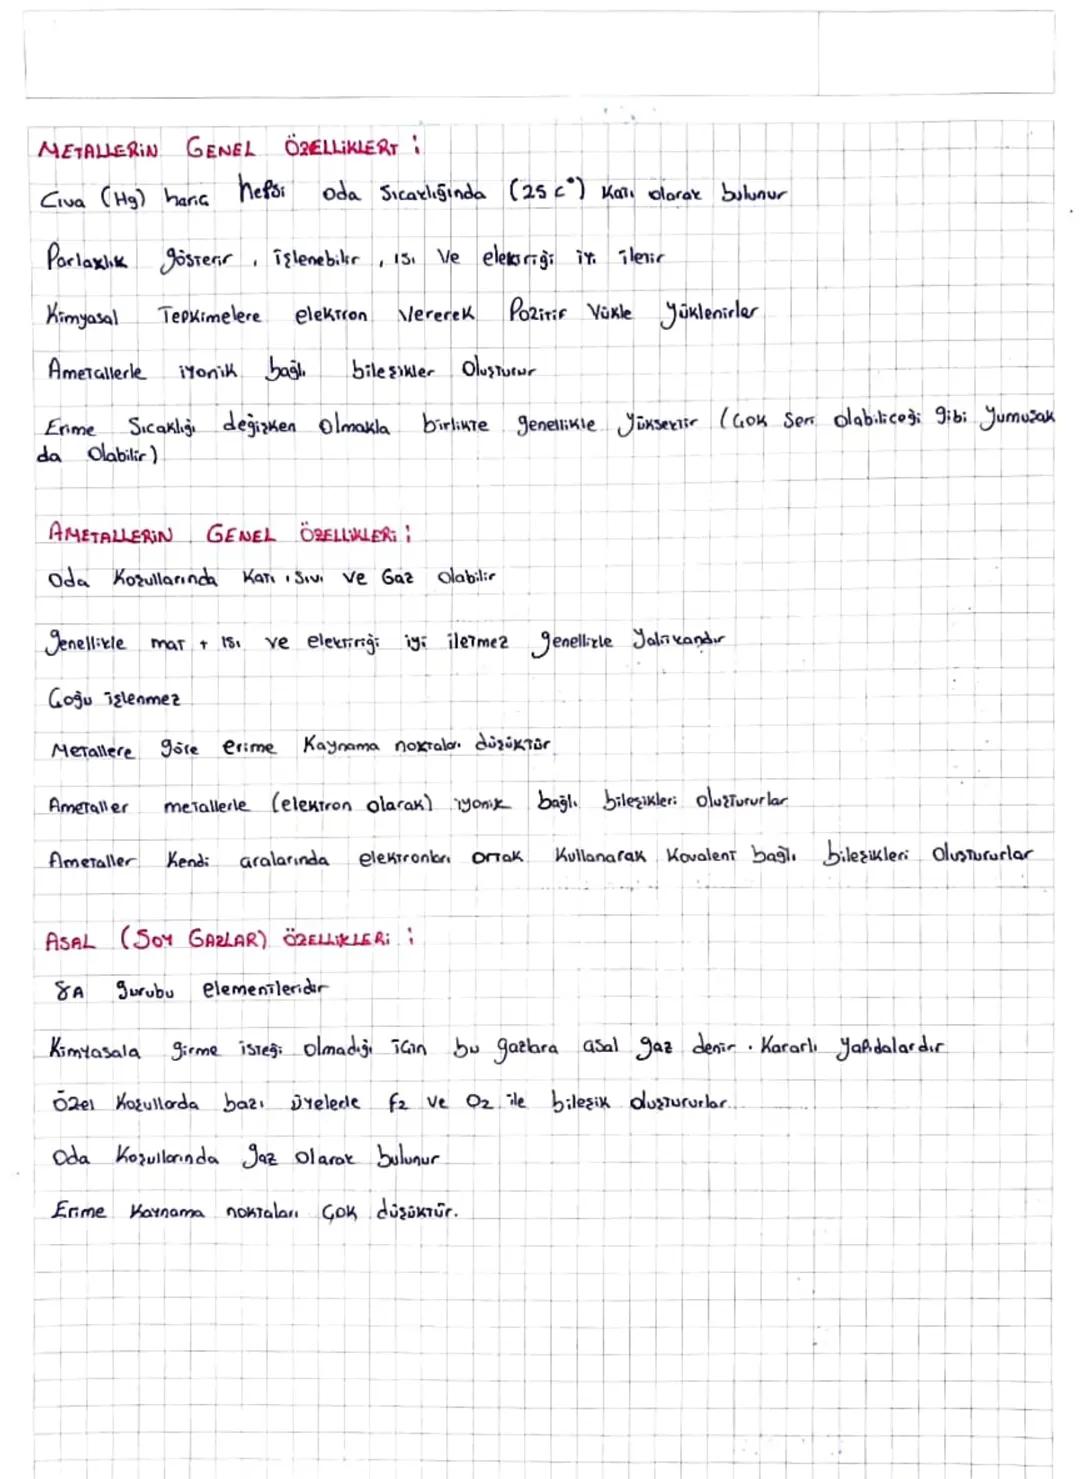 METALLERİN GENEL ÖZELLİKLERİ :
Civa (Hg) hariç hepsi oda Sıcaklığında (25 C°) Katı olarak bulunur
Parlaklık gösterir , işlenebilir , ısı ve elektriği iyi iletir
Kimyasal Tepkimelere elektron Vererek Pozitif Yükle yüklenirler
Ametallerle iyonik bağlı bileşikler Oluşturur
Erime Sıcaklığı değişken Olmakla birlikte genellikle yüksektir (Çok Sert olabiliceği gibi yumuşak
da Olabilir)
AMETALLERİN GENEL ÖZELLİKLERİ :
Oda Koşullarında Katı , Sıvı ve Gaz Olabilir
genellikle mat + ısı ve elektiriği iyi iletmez genellikle yalıtkandır
Çoğu işlenmez
Metallere göre erime Kaynama noktaları düşüktür
Ametaller metallerle (elektron olarak) iyonik bağlı bileşikleri oluştururlar
Ametaller Kendi aralarında elektronları ortak Kullanarak Kovalent bağlı bileşikleri Oluştururlar
ASAL (SOY GAZLAR) ÖZELLİKLERİ :
8A gurubu elementleridir
Kimyasala girme isteği olmadığı için bu gazlara asal gaz denir . Kararlı yapıdalardır
Özel Koşullarda bazı üyelerle F2 ve O2 ile bileşik oluştururlar.
Oda Koşullarında gaz Olarak bulunur
Erime Kaynama noktaları Çok düşüktür.